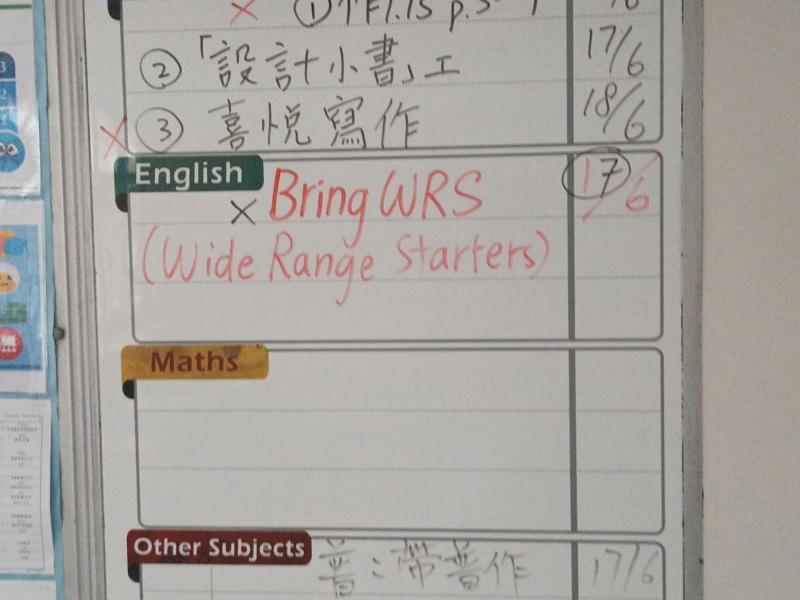 ②「設計小書」工 17/6
× ③ 喜悅寫作 18/6
English
× Bring WRS 17/6
(Wide Range Starters)
Maths
Other Subjects
普：帶普作 17/6